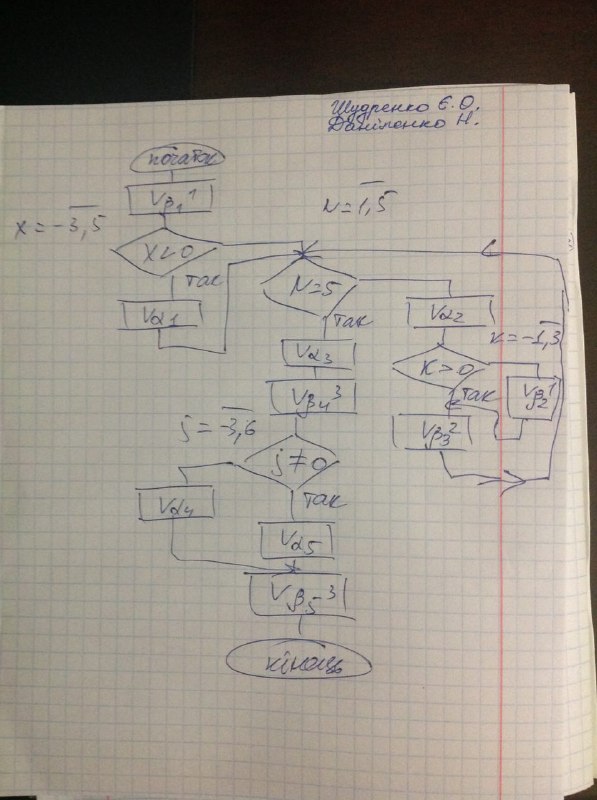 Шудренко Є.О.
Даніленко Н.
початок
Vβ₁¹
N=1,5
x=-3,5
X<0
так
Vα₁
N=5
так
Vα₂
K=-1,3
K>0
так
Vβ₂¹
Vβ₃²
Vα₃
Vβ₄³
j=-3,6
j≠0
так
Vα₄
Vα₅
Vβ₅³
кінець